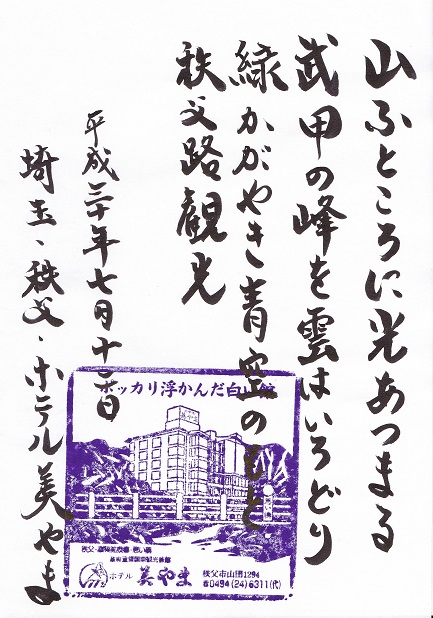 山ふところに光あつまる
武甲の峰を雲はいろどり
緑かがやき青空のもと
秩父路観光
平成三十年七月十六日
埼玉・秩父・ホテル美やま
ポッカリ浮かんだ白い館
ホテル 美やま
秩父市山田1294
☎0494(24)6311(代)